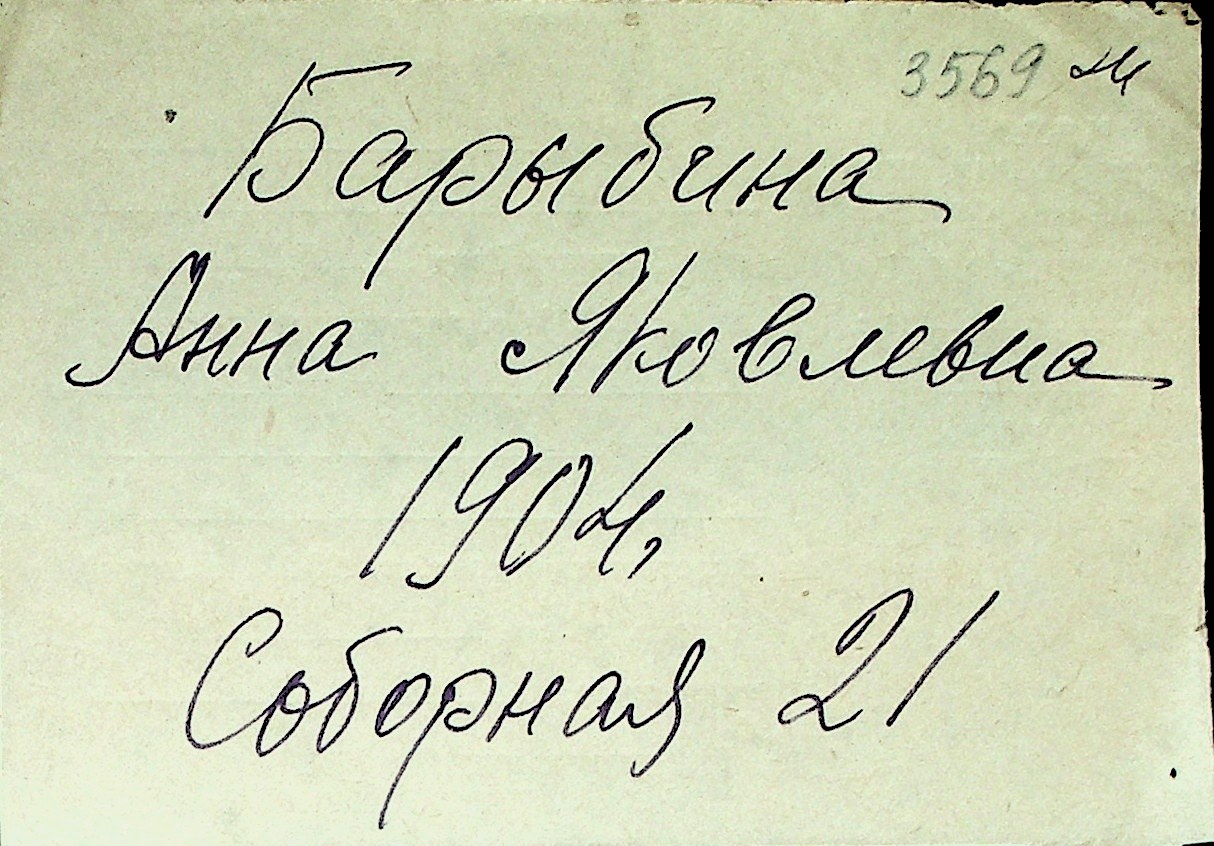 3569
Барыбина
Анна Яковлевна
1904,
Соборная 21